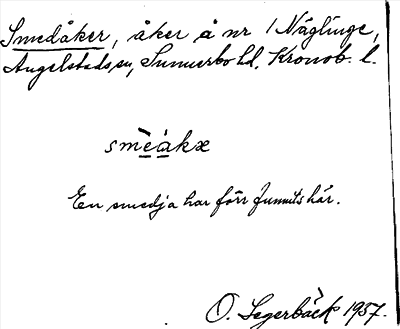 Smedåker, åker å nr 1 Näglinge,
Angelstads sn, Sunnerbo hd, Kronob. l.
smèákæ
En smedja har förr funnits här.
O. Segerbäck 1937.